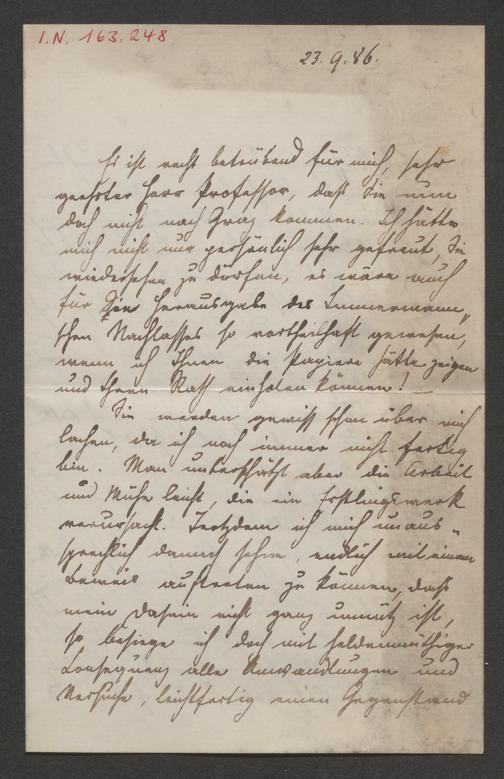 I.N. 163.248
23.9.86.
Es ist recht betrübend für mich, sehr
geehrter Herr Professor, daß Sie nun
doch nicht nach Graz kommen. Ich hätte
mich nicht nur persönlich sehr gefreut, Sie
wiedersehen zu dürfen, es wäre auch
für die Herausgabe des Immermann„
schen Nachlasses so vortheilhaft gewesen,
wenn ich Ihnen die Papiere hätte zeigen
und Ihren Rath einholen können! —
Sie werden gewiß schon über mich
lachen, da ich noch immer nicht fertig
bin. Man unterschätzt aber die Arbeit
und Mühe leicht, die ein Erstlingswerk
verursacht. Trotzdem ich mich unaus„
sprechlich danach sehne, endlich mit einem
Beweis auftreten zu können, daß
mein Dasein nicht ganz unnütz ist,
so besiege ich doch mit heldenmüthiger
Consequenz alle Anwandlungen und
Versuche, leichtfertig einen Gegenstand